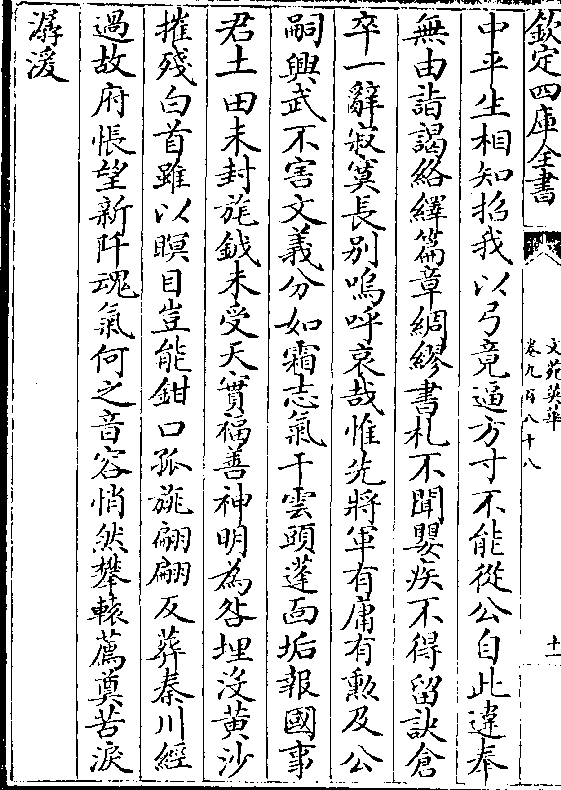 欽定四庫全書
文苑英華
卷九百八十八
十一
中平生相知招我以弓竟逼方寸不能從公自此違奉
無由詣謁絡繹篇章綢繆書札不聞嬰疾不得留訣倉
卒一辭寂寞長別嗚呼哀哉惟先將軍有庸有勲及公
嗣興武不害文義分如霜志氣干雲頭蓬面垢報國事
君土田未封旄鉞未受天實福善神明為咎埋沒黄沙
摧殘白首雖以瞑目豈能鉗口孤旐翩翩反葬秦川經
過故府悵望新阡魂氣何之音容悄然攀轅薦奠苦淚
潺湲